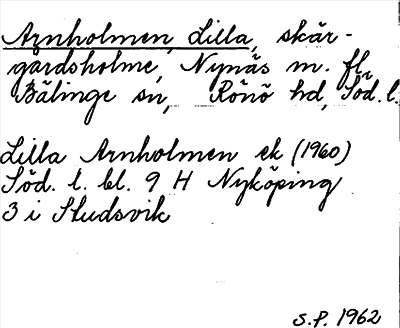 Arnholmen, Lilla, skär-
gårdsholme, Nynäs m. fl.
Bälinge sn, Rönö hd, Söd. l.
Lilla Arnholmen ek (1960)
Söd. l. bl. 9 H Nyköping
3 i Studsvik
S.P. 1962